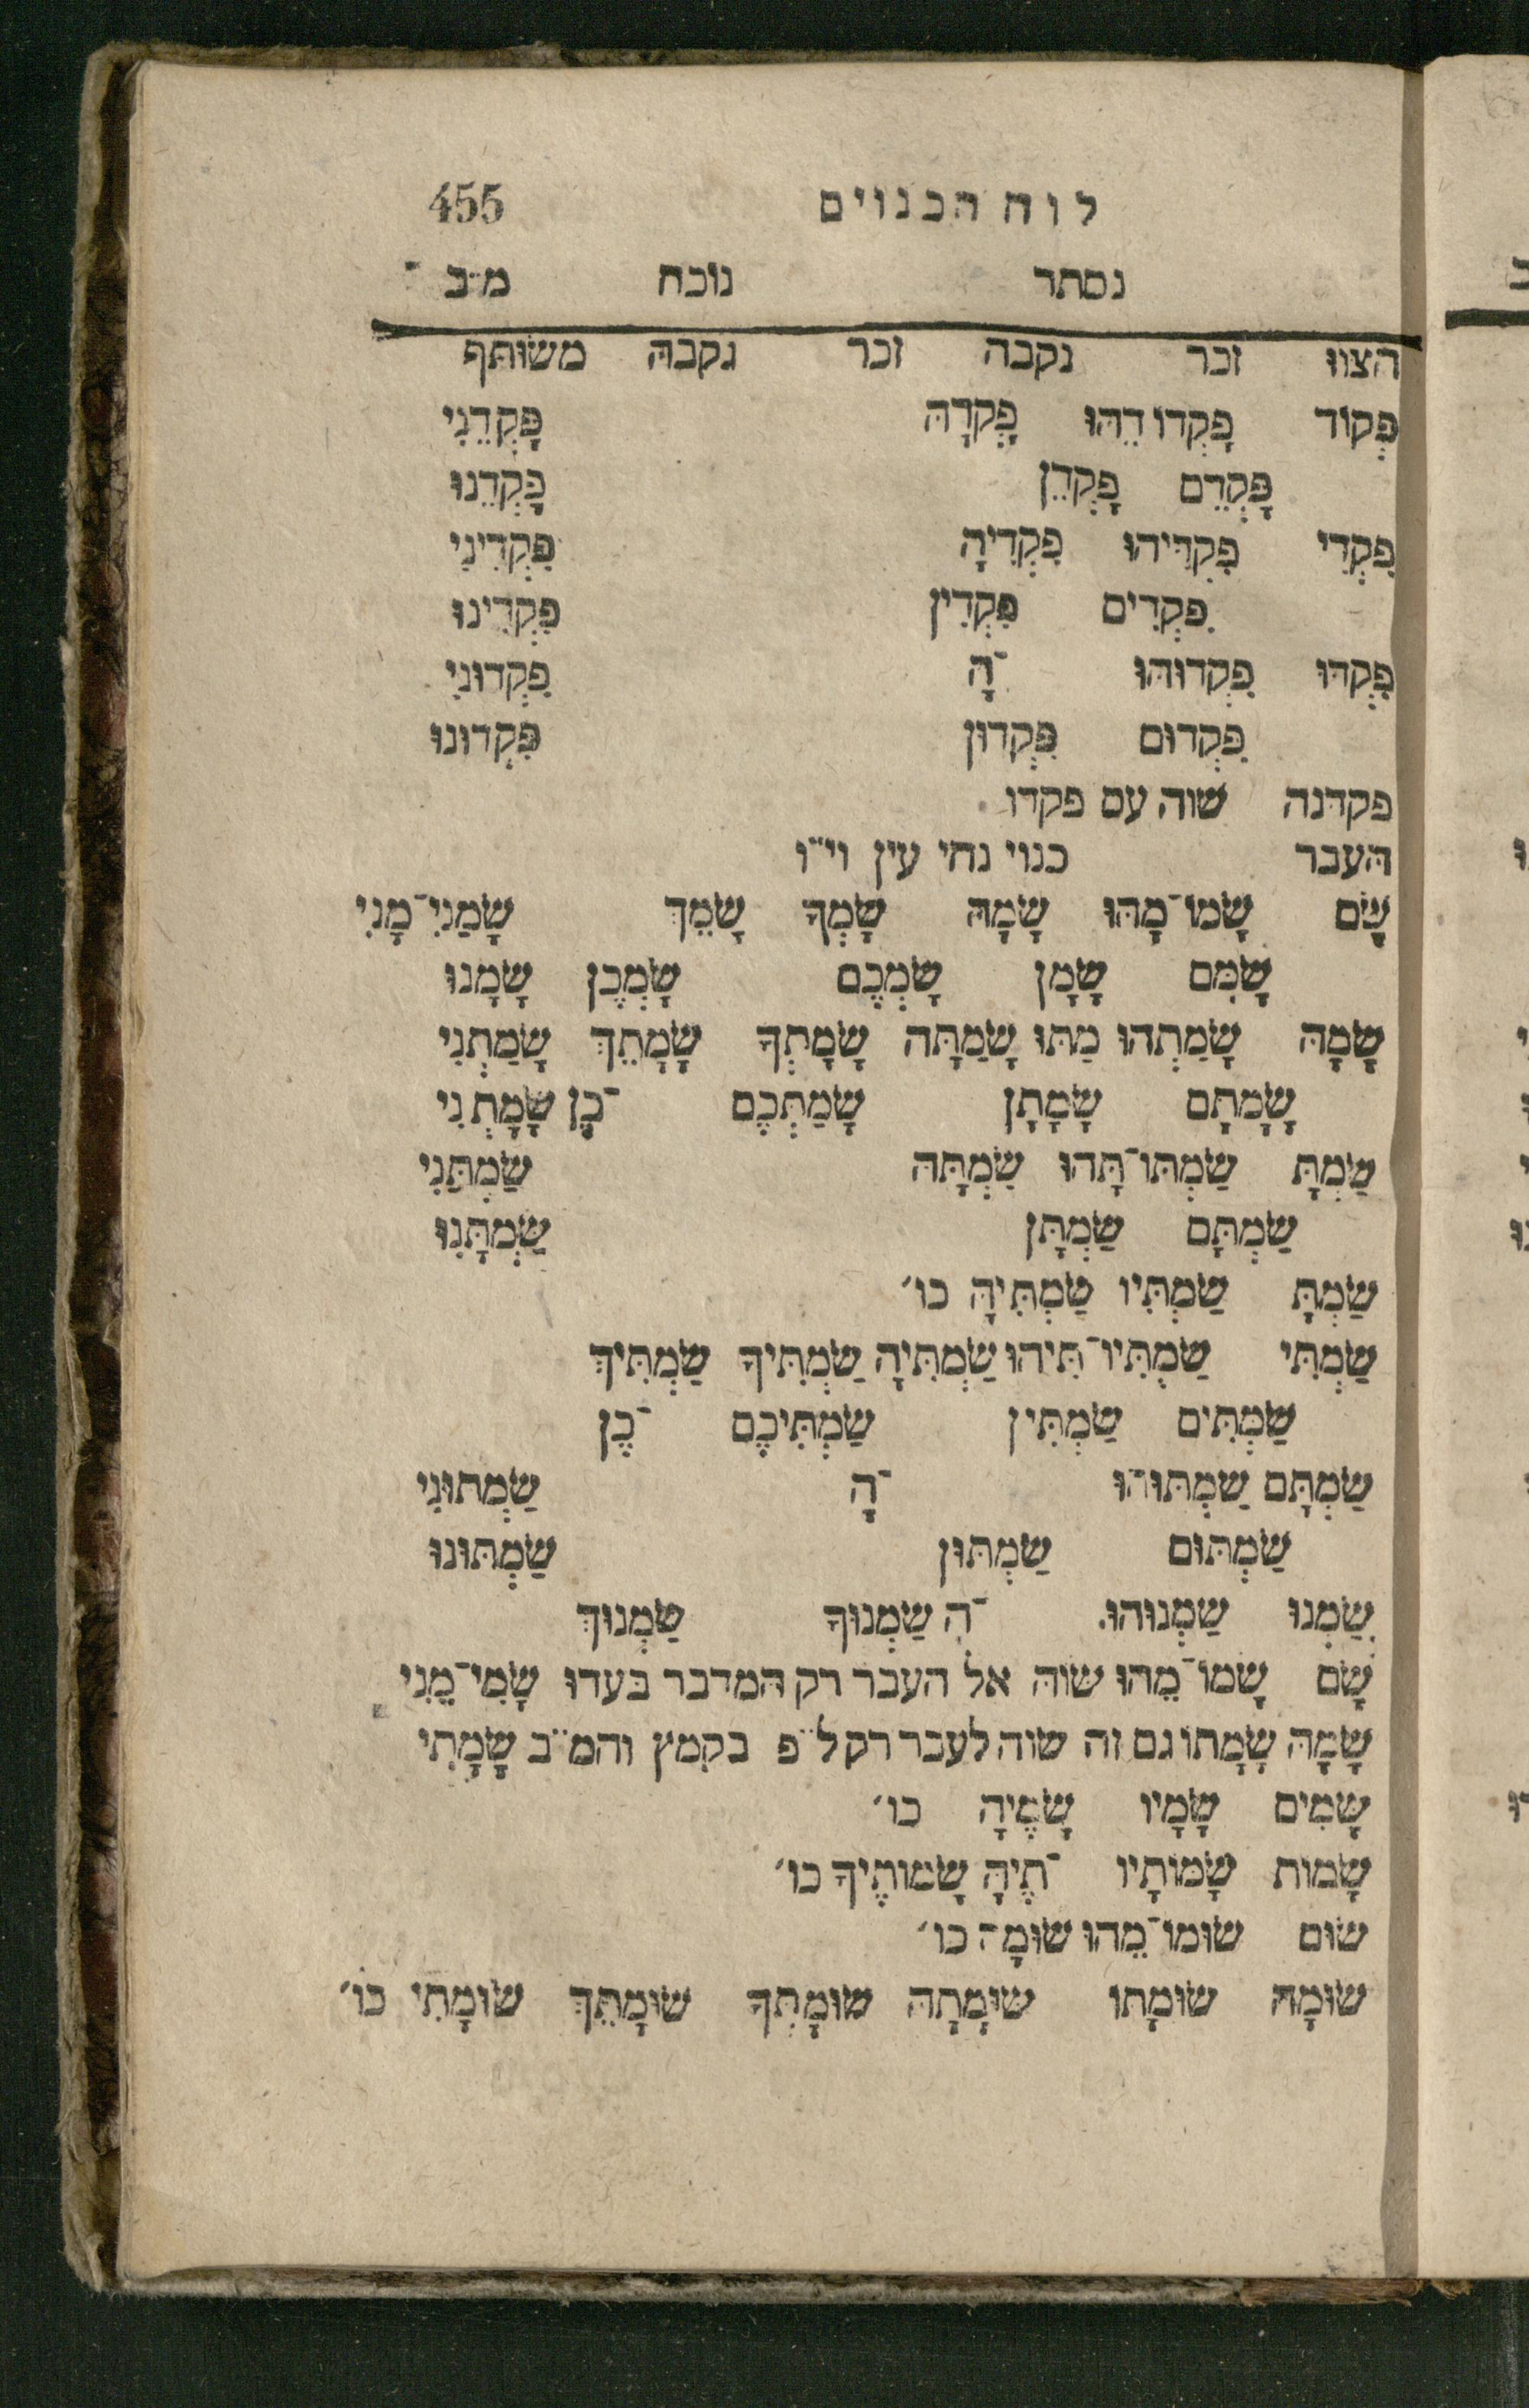 לוח הכנוים 455
נסתר נוכח מ״ב
הצווּ זכר נקבה זכר נקבה משותף
פְּקוֹד פָּקְדוֹ דֵהוּ פָּקְדָהּ פָּקְדֵנִי
פָּקְדֵם פָּקְדֵן פָּקְדֵנוּ
פִּקְדִי פִּקְדִיהוּ פִּקְדִיהָ פִּקְדִינִי
פִּקְדִים פִּקְדִין פִּקְדִינוּ
פִּקְדוּ פִּקְדוּהוּ ־הָ פִּקְדוּנִי
פִּקְדוּם פִּקְדוּן פִּקְדוּנוּ
פקדנה שוה עם פקדו
העבר כנוי נחי עין וי״ו
שָׂם שָׂמוֹ־מָהוּ שָׂמָהּ שָׂמְךָ שָׂמֵךְ שָׂמַנִי־מָנִי
שָׂמָם שָׂמָן שָׂמְכֶם שָׂמְכֶן שָׂמָנוּ
שָׂמָה שָׂמַתְהוּ מַתּוּ שָׂמַתָּה שָׂמָתְךָ שָׂמָתֵךְ שָׂמַתְנִי
שָׂמָתָם שָׂמָתָן שָׂמַתְּכֶם ־כֶן שָׂמָתְנִי
שַׂמְתָּ שַׂמְתּוֹ־תָּהוּ שַׂמְתָּהּ שַׂמְתַּנִי
שַׂמְתָּם שַׂמְתָּן שַׂמְתָּנוּ
שַׂמְתְּ שַׂמְתִּיו שַׂמְתִּיהָ כו׳
שַׂמְתִּי שַׂמְתִּיו־תִּיהוּ שַׂמְתִּיהָ שַׂמְתִּיךָ שַׂמְתִּיךְ
שַׂמְתִּים שַׂמְתִּין שַׂמְתִּיכֶם ־כֶן
שַׂמְתָּם שַׂמְתּוּהוּ ־הָ שַׂמְתּוּנִי
שַׂמְתּוּם שַׂמְתּוּן שַׂמְתּוּנוּ
שַׂמְנוּ שַׂמְנוּהוּ ־הָ שַׂמְנוּךָ שַׂמְנוּךְ
שָׂם שָׂמוֹ־מֵהוּ שוה אל העבר רק המדבר בעדו שָׂמִי־מֵנִי
שָׂמָה שָׂמָתוֹ גם זה שוה לעבר רק ל״פ בקמץ והמ״ב שָׂמָתִי
שָׂמִים שָׂמָיו שָׂמֶיהָ כו׳
שָׂמוֹת שָׂמוֹתָיו ־תֶיהָ שָׂמוֹתֶיךָ כו׳
שׂוּם שׂוּמוֹ־מֵהוּ שׂוּמָהּ כו׳
שׂוּמָה שׂוּמָתוֹ שׂוּמָתָהּ שׂוּמָתְךָ שׂוּמָתֵךְ שׂוּמָתִי כו׳